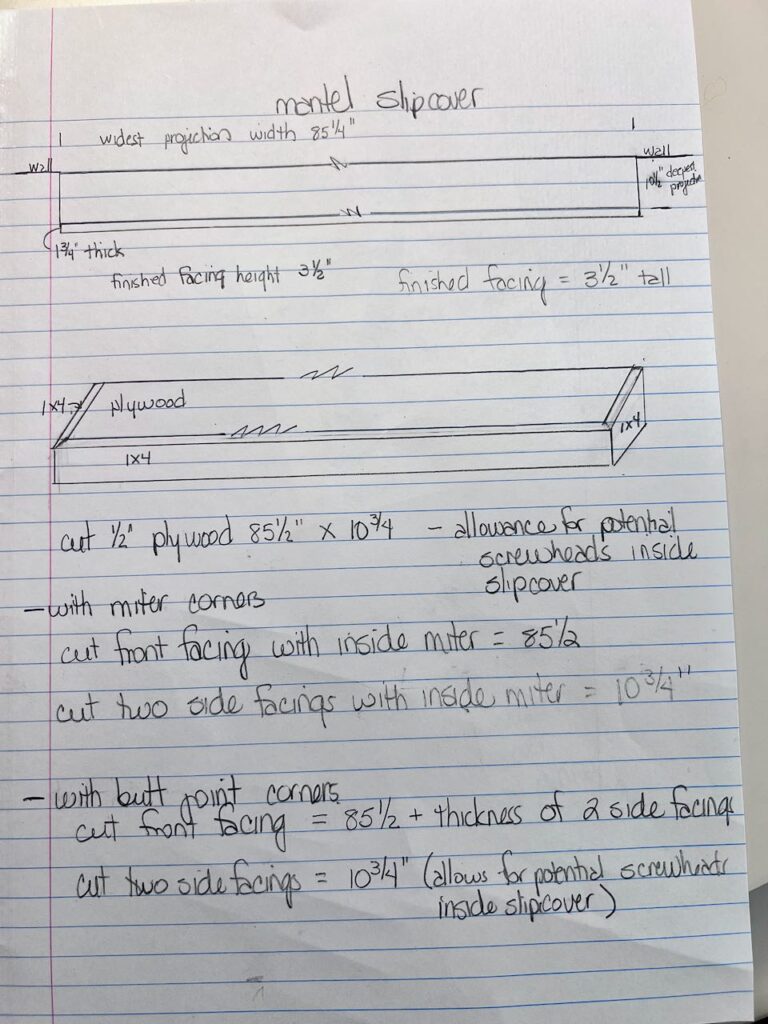 mantel slipcover
widest projection width 85 1/4"
wall
wall
10 1/2" deepest
projection
1 3/4" thick
finished facing height 3 1/2"
finished facing = 3 1/2" tall
1x4
plywood
1x4
1x4
cut 1/2" plywood 85 1/2" x 10 3/4 - allowance for potential
screwheads inside
slipcover
- with miter corners
cut front facing with inside miter = 85 1/2
cut two side facings with inside miter = 10 3/4"
- with butt joint corners
cut front facing = 85 1/2 + thickness of 2 side facings
cut two side facings = 10 3/4" (allows for potential screwheads
inside slipcover)